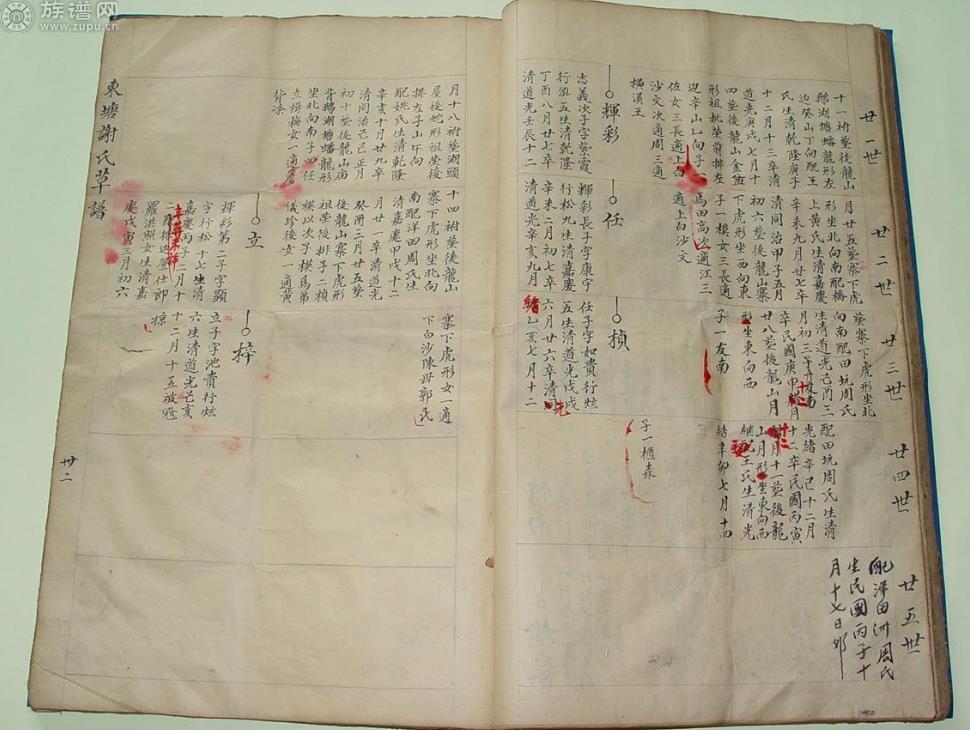 族谱网
www.zupu.cn
廿一世
十一祔塟後龍山
鵝湖塘蟠龍形左
邊癸山丁向配王
氏生清乾隆庚子
十二月十三卒清
道光庚戌七月十
四塟後龍山金盤
形祖妣塋前排左
邊辛山乙向子一
佐女三長適上白
沙文次適周三適
橫溪王
輝彩
志義次子字紫霞
行五生清乾隆
丁酉八月廿七卒
清道光壬辰十二
月十八祔塟湖頭
屋後蛇形祖塋後
排左子山午向
配姚氏生清乾隆
辛亥十月廿九卒
清同治己巳正月
初十塟後龍山庙
背鵝湖塘蟠龍形
坐北向南子四任
立揖梅女一適
背凃
廿二世
月廿五塟寨下虎
形坐北向南配橋
上黄氏生清嘉慶
辛未九月廿七卒
清同治甲子五月
初六塟後龍山寨
下虎形坐西向東
子一模女三長適
馬田高次適江三
適上白沙文
任
輝彩長子字康宇
行松九生清嘉慶
辛未二月初七卒
清道光辛亥九月
十四祔塟後龍山
寨下虎形坐北向
南配洋田周氏生
清嘉慶甲戌十二
月廿一卒清道光
癸酉三月廿五塟
後龍山寨下虎形
祖塋後排子二楨
模以次子模為弟
儀珍後女一適黄
立
輝彩第二子字顯
字行松十七生清
嘉慶丙子二月十
二
羅洪照女生清嘉
慶戊寅三月初六
廿三世
塟寨下虎形坐北
向南配田坑周氏
生清道光己酉三
月初三午
卒民國庚申月
廿八塟後龍山月
形坐東向西
子一友南
楨
任子字如貴行炫
五生清道光戊戌
六月廿六卒清光
緒乙亥七月十二
寨下虎形女一適
下白沙陳毋郭氏
梓
立子字池貴行炫
六生清道光己亥
十二月十五被冦
掠
廿四世
友南
配田坑周氏生清
光緒辛巳十二月
十二卒民國丙寅
十二月十一塟後龍
山月形坐東向西
繼配王氏生清光
緒辛卯七月十四
子一櫃森
廿五世
配洋田洲周氏
生民國丙子十
月十七日卯
東塘謝氏草譜
卅二